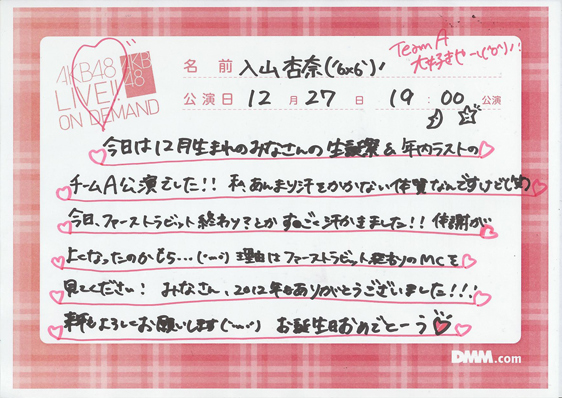 AKB48
LIVE!!
ON DEMAND
AKB
48
名前 入山杏奈('6x6')ﾉ
Team A
大好きやーい(^o^)ﾉ
公演日 12月27日 19:00 公演
今日は12月生まれのみなさんの生誕祭&年内ラストの
チームA公演でした!! 私、あんまり汗をかかない体質なんですけど(笑)
今日、ファーストラビット終わり?とか すっごく汗かきました!! 代謝が
よくなったのかもら…(・ー・) 理由はファーストラビット終わりのMCを
見てください! みなさん、2012年もありがとうございました!!!
来年もよろしくお願いします(・ー・) お誕生日おめでとーう♡
DMM.com